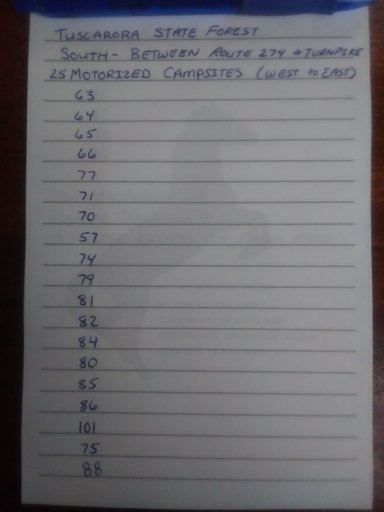 TUSCARORA STATE FOREST
SOUTH - BETWEEN ROUTE 274 & TURNPIKE
25 MOTORIZED CAMPSITES (WEST to EAST)
63
64
65
66
77
71
70
57
74
79
81
82
84
80
85
86
101
75
88